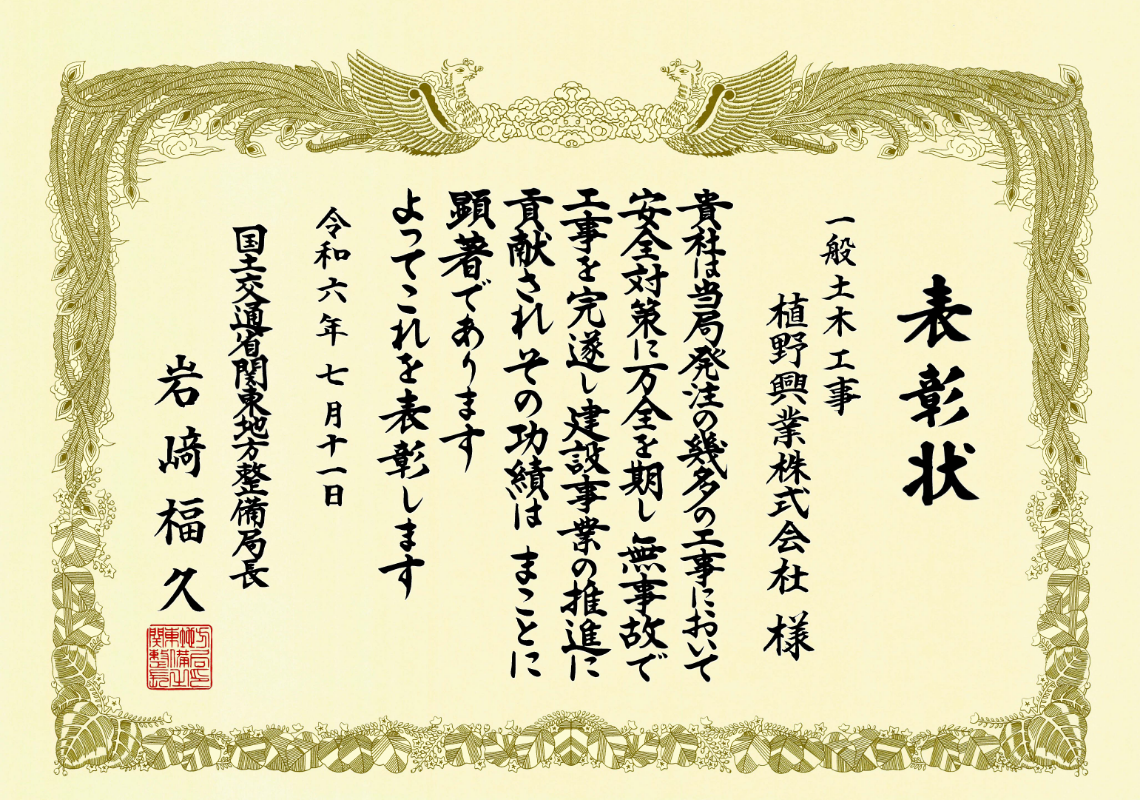 表彰状
一般土木工事
植野興業株式会社 様
貴社は当局発注の幾多の工事において
安全対策に万全を期し 無事故で
工事を完遂し建設事業の推進に
貢献され その功績は まことに
顕著であります
よってこれを表彰します
令和六年七月十一日
国土交通省関東地方整備局長
岩﨑福久